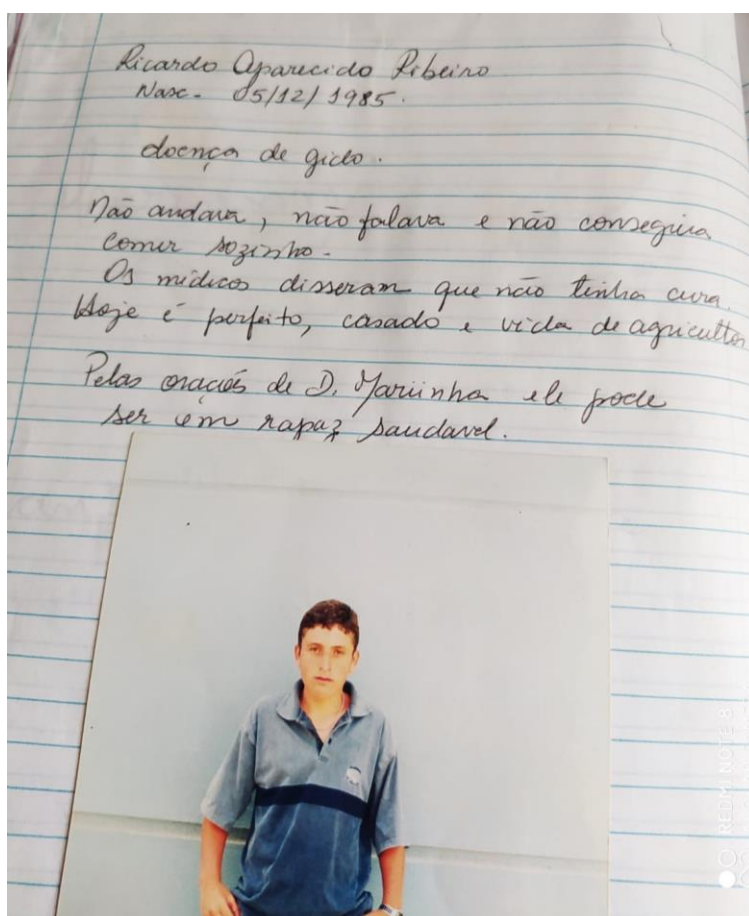 Ricardo Aparecido Ribeiro
Nasc. 05/12/1985.
doença de gido.
Não andava, não falava e não conseguia
comer sozinho.
Os médicos disseram que não tinha cura.
Hoje é perfeito, casado e vida de agricultor
Pelas orações de D. Mariinha ele pode
ser um rapaz saudavel.
REDMI NOTE 8